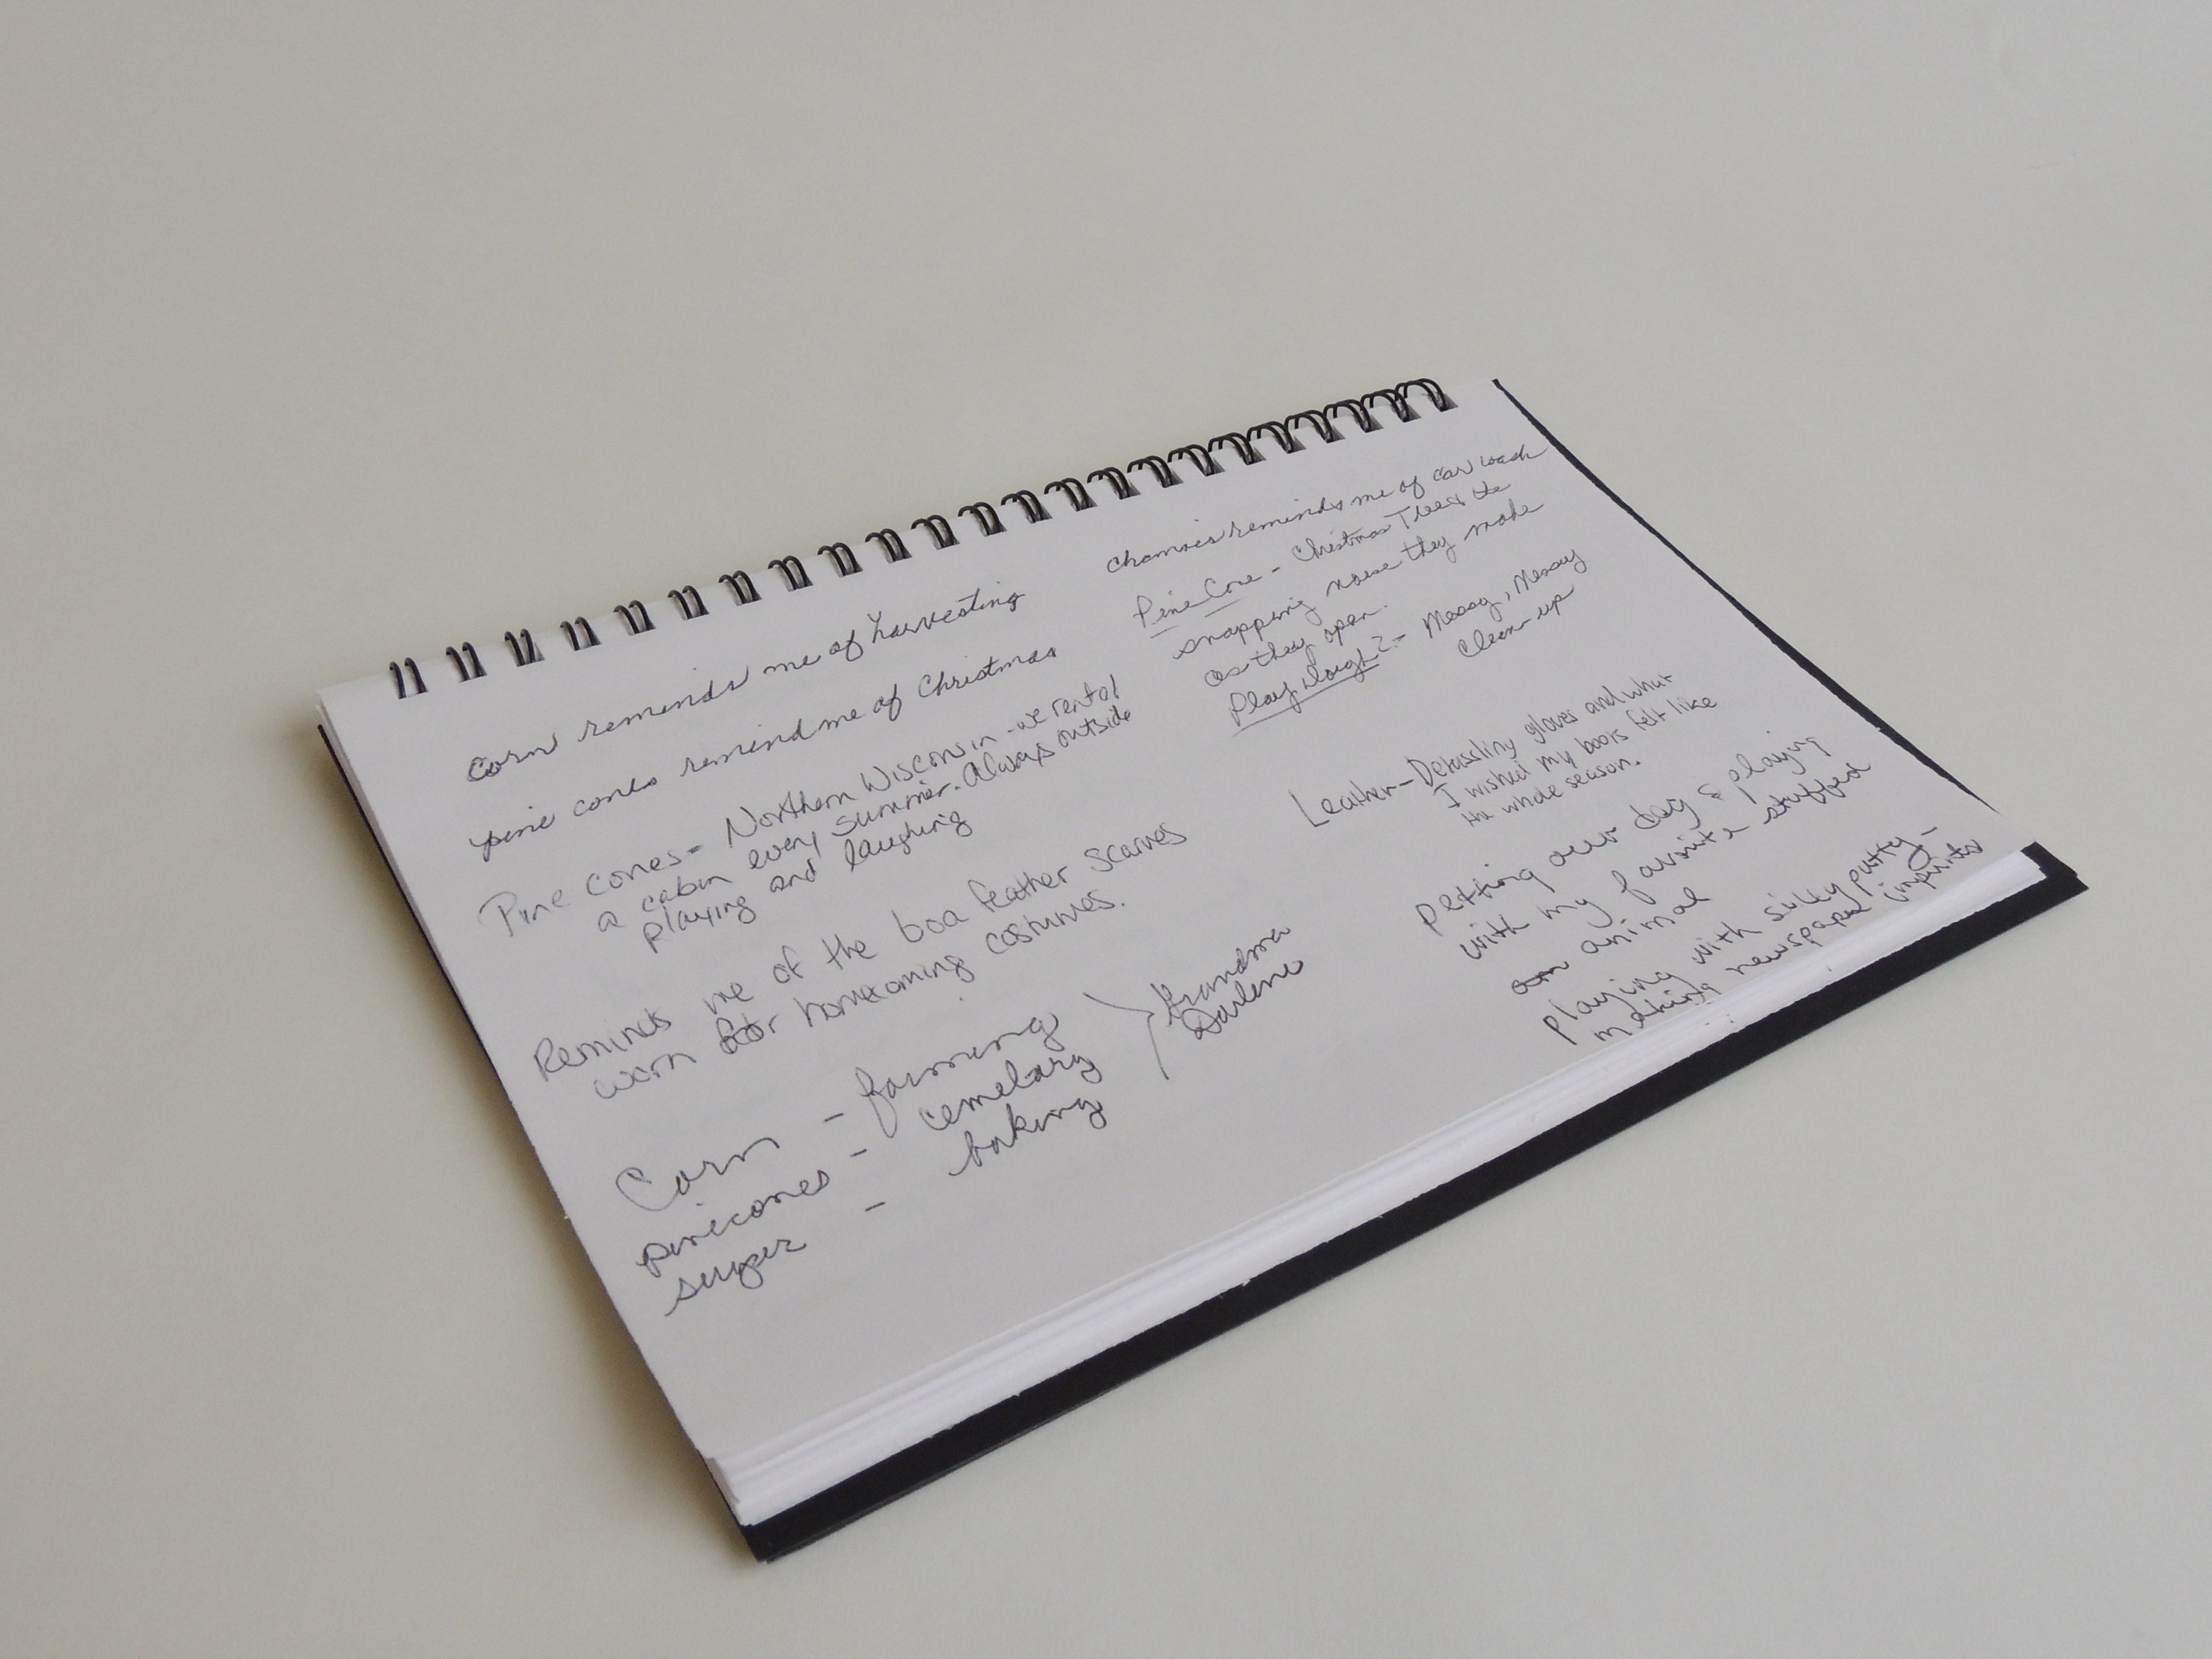 Corn reminds me of harvesting
pine cones remind me of Christmas
Pine cones - Northern Wisconsin - we rented
a cabin every summer. Always outside
playing and laughing
Reminds me of the boa feather scarves
worn for homecoming costumes.
Corn - farming
pinecones - cemetary
sugar - baking
Grandma
Darlene
chamois reminds me of car wash
Pine Cone - Christmas Trees & the
snapping noise they make
as they open.
Play dough? - Messy, Messy
Clean-up
Leather - Detassling gloves and what
I wished my boots felt like
the whole season.
Petting our dog & playing
with my favorite stuffed
animal
playing with silly putty -
making newspaper imprints